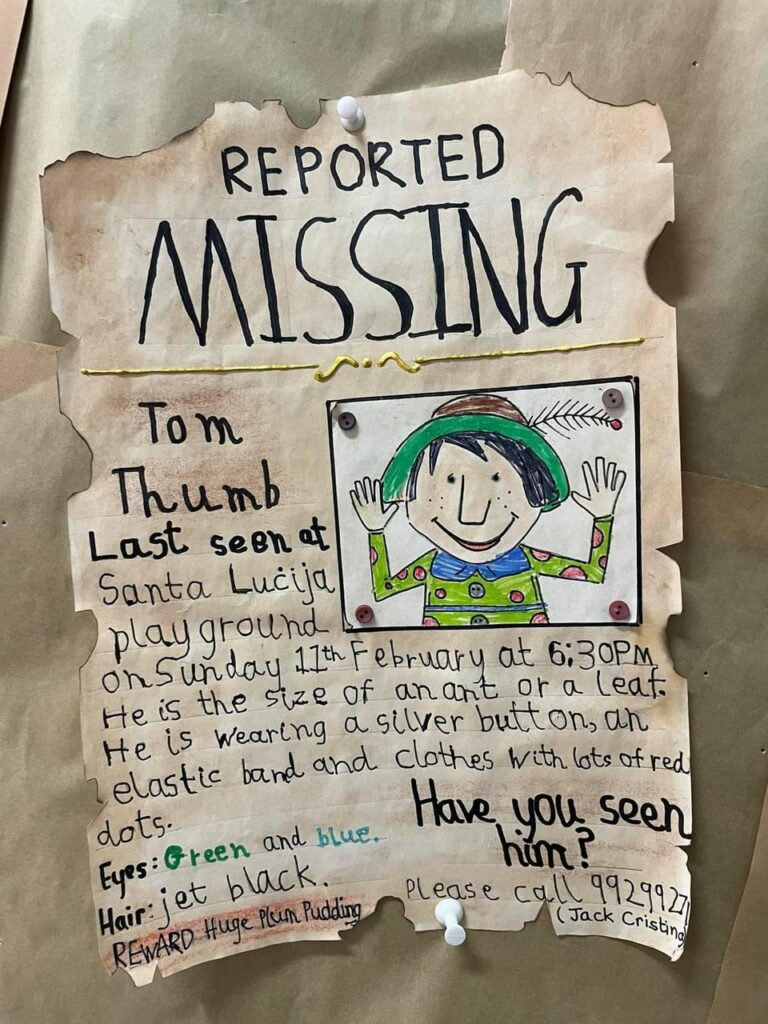 REPORTED
MISSING
Tom
Thumb
Last seen at
Santa Luċija
playground
on Sunday 11th February at 6:30PM
He is the size of an ant or a leaf.
He is wearing a silver button, an
elastic band and clothes with lots of red
dots.
Eyes: Green and blue.
Hair: jet black.
REWARD Huge Plum Pudding
Have you seen
him?
Please call 99299271
(Jack Cristina)